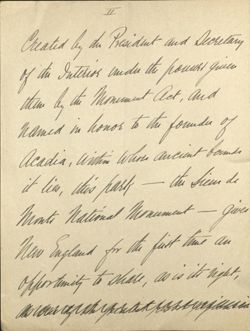 II
Created by the President and Secretary
of the Interior under the powers given
them by the Monument Act, and
named in honor to the founder of
Acadia, within whose ancient bounds
it lies, this park — the Sieur de
Monts National Monument — gives
New England for the first time an
opportunity to share, as is its right,